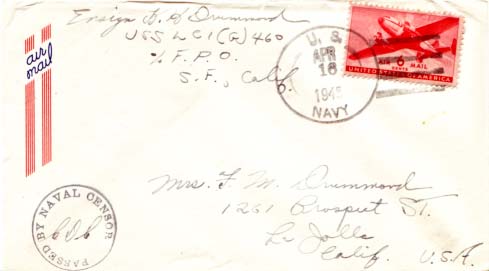 Ensign F. H Drummond
USS LCI(G) 460
% F.P.O.
S.F., Calif.
air
mail
U. S.
APR
16
1945
NAVY
AIR 6 MAIL
CENTS
UNITED STATES OF AMERICA
PASSED BY NAVAL CENSOR
Mrs. F. M. Drummond
1261 Prospect St.
La Jolla
Calif. U.S.A.